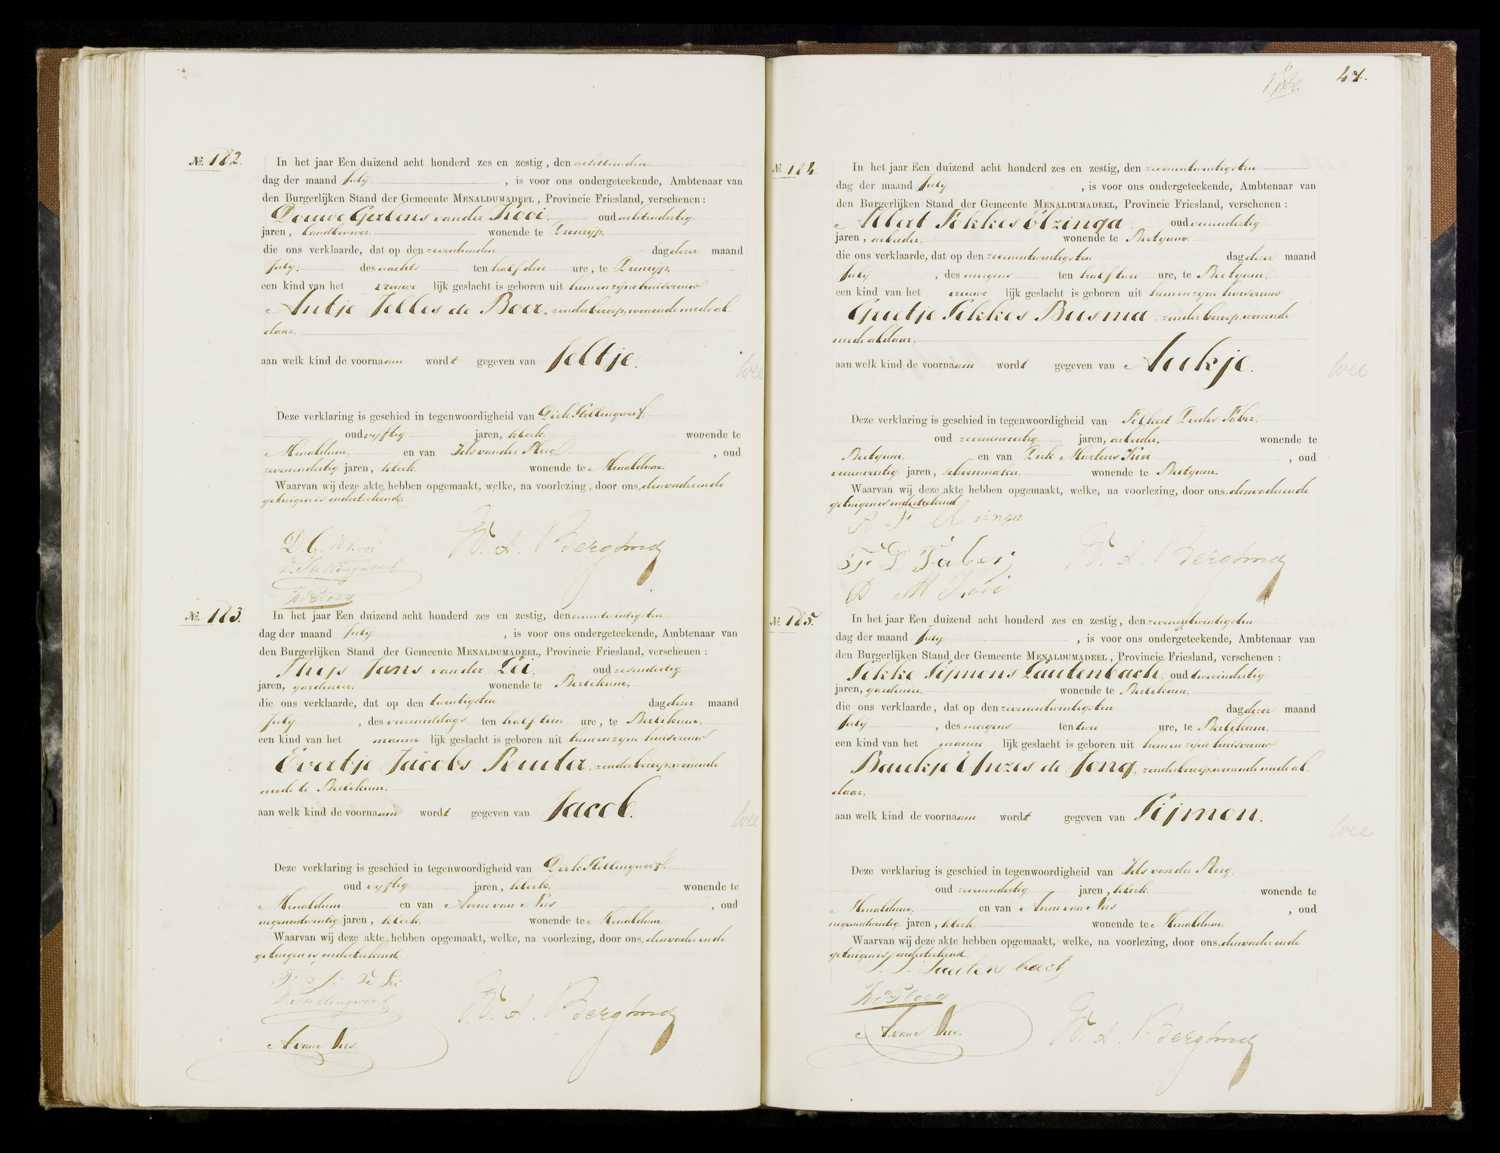 47.
No. 182.
In het jaar Een duizend acht honderd zes en zestig, den achttienden
dag der maand July, is voor ons ondergeteekende, Ambtenaar van
den Burgerlijken Stand der Gemeente MENALDUMADEEL, Provincie Friesland, verschenen:
Douwe Gerlens van der Kooi, oud achtendertig
jaren, landbouwer wonende te Dronryp,
die ons verklaarde, dat op den zeventienden dag dezer maand
July, des nachts ten half drie ure, te Dronryp,
een kind van het vrouwe lijk geslacht is geboren uit hem en zijne huisvrouw
Antje Jelles de Boer, zonder beroep, wonende mede al
daar,
aan welk kind de voornaam wordt gegeven van Jeltje.
wee
Deze verklaring is geschied in tegenwoordigheid van Dirk Stellingwerf,
oud vyftig jaren, klerk, wonende te
Menaldum, en van Ids van der Ploeg, oud
zevenendertig jaren, klerk, wonende te Menaldum.
Waarvan wij deze akte hebben opgemaakt, welke, na voorlezing, door ons, de invoornde en de
getuigen is onderteekend.
D. G. v. d. Kooi
D. Stellingwerf
W. A. Bergsma
No. 183.
In het jaar Een duizend acht honderd zes en zestig, den eenentwintigsten
dag der maand July, is voor ons ondergeteekende, Ambtenaar van
den Burgerlijken Stand der Gemeente MENALDUMADEEL, Provincie Friesland, verschenen:
Thijs Jans van der Lei, oud zesendertig
jaren, gardenier, wonende te Berlikum,
die ons verklaarde, dat op den twintigsten dag dezer maand
July, des voormiddags ten half tien ure, te Berlikum,
een kind van het manne lijk geslacht is geboren uit hem en zijne huisvrouw
Evertje Jacobs Runia, zonder beroep, wonende
mede te Berlikum,
aan welk kind de voornaam wordt gegeven van Jacob.
wee
Deze verklaring is geschied in tegenwoordigheid van Dirk Stellingwerf,
oud vyftig jaren, klerk, wonende te
Menaldum en van Anne van Nes, oud
negenentwintig jaren, klerk, wonende te Menaldum.
Waarvan wij deze akte hebben opgemaakt, welke, na voorlezing, door ons,
getuigen is onderteekend.
D. Stellingwerf
A van Nes.
W. A. Bergsma
No. 184.
In het jaar Een duizend acht honderd zes en zestig, den zevenentwintigsten
dag der maand July, is voor ons ondergeteekende, Ambtenaar van
den Burgerlijken Stand der Gemeente MENALDUMADEEL, Provincie Friesland, verschenen:
Fokkes Elzinga, oud
jaren, arbeider, wonende te Beetgum,
die ons verklaarde, dat op den zevenentwintigsten dag dezer maand
July, des morgens ten half twee ure, te Beetgum,
een kind van het vrouwe lijk geslacht is geboren uit hem en zijne huisvrouw
Grietje Fekkes Busma, zonder beroep, wonende
mede aldaar,
aan welk kind de voornaam wordt gegeven van Aukje.
wee
Deze verklaring is geschied in tegenwoordigheid van
oud jaren, arbeider, wonende te
Beetgum, en van Dirk Martens Kooi, oud
jaren, schoenmaker, wonende te Beetgum.
Waarvan wij deze akte hebben opgemaakt, welke, na voorlezing, door ons,
getuigen is onderteekend.
D M Kooi
W. A. Bergsma
No. 185.
In het jaar Een duizend acht honderd zes en zestig, den zevenentwintigsten
dag der maand July, is voor ons ondergeteekende, Ambtenaar van
den Burgerlijken Stand der Gemeente MENALDUMADEEL, Provincie Friesland, verschenen:
Fekke Sijmons Lautenbach, oud
jaren, gardenier, wonende te Berlikum,
die ons verklaarde, dat op den zevenentwintigsten dag dezer maand
July, des morgens ten twee ure, te Berlikum,
een kind van het manne lijk geslacht is geboren uit hem en zijne huisvrouw
Baukje de Jong, zonder beroep, wonende mede al
daar,
aan welk kind de voornaam wordt gegeven van Sijmon.
wee
Deze verklaring is geschied in tegenwoordigheid van Ids van der Ploeg,
oud zevenendertig jaren, klerk, wonende te
Menaldum, en van Anne van Nes, oud
negenentwintig jaren, klerk, wonende te Menaldum.
Waarvan wij deze akte hebben opgemaakt, welke, na voorlezing, door ons,
getuigen is onderteekend.
Lautenbach
A. van Nes.
W. A. Bergsma